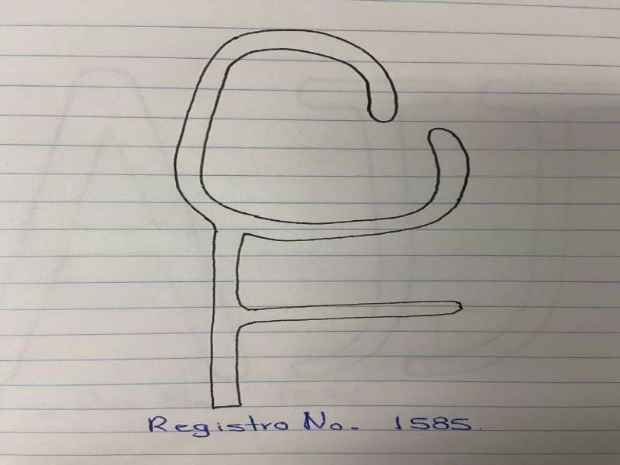 Registro No. 1585.